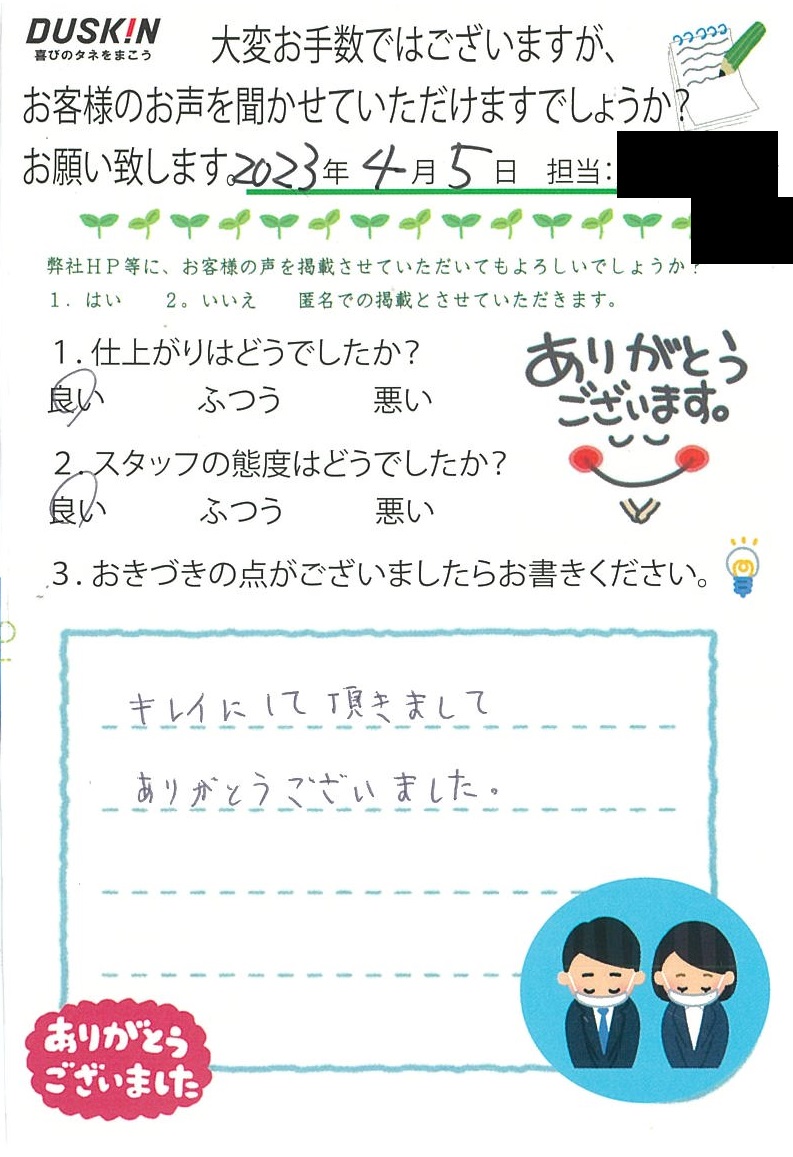 DUSK!N
喜びのタネをまこう
大変お手数ではございますが、
お客様のお声を聞かせていただけますでしょうか?
お願い致します。2023年 4月 5日 担当:
弊社HP等に、お客様の声を掲載させていただいてもよろしいでしょうか?
1. はい 2。いいえ 匿名での掲載とさせていただきます。
1.仕上がりはどうでしたか?
良い ふつう 悪い
ありがとう
ございます。
2.スタッフの態度はどうでしたか?
良い ふつう 悪い
3.おきづきの点がございましたらお書きください。
キレイにして頂きまして
ありがとうございました。
ありがとう
ございました